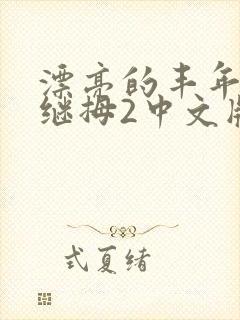 漂亮的丰年
继拇2中文版
式夏绪